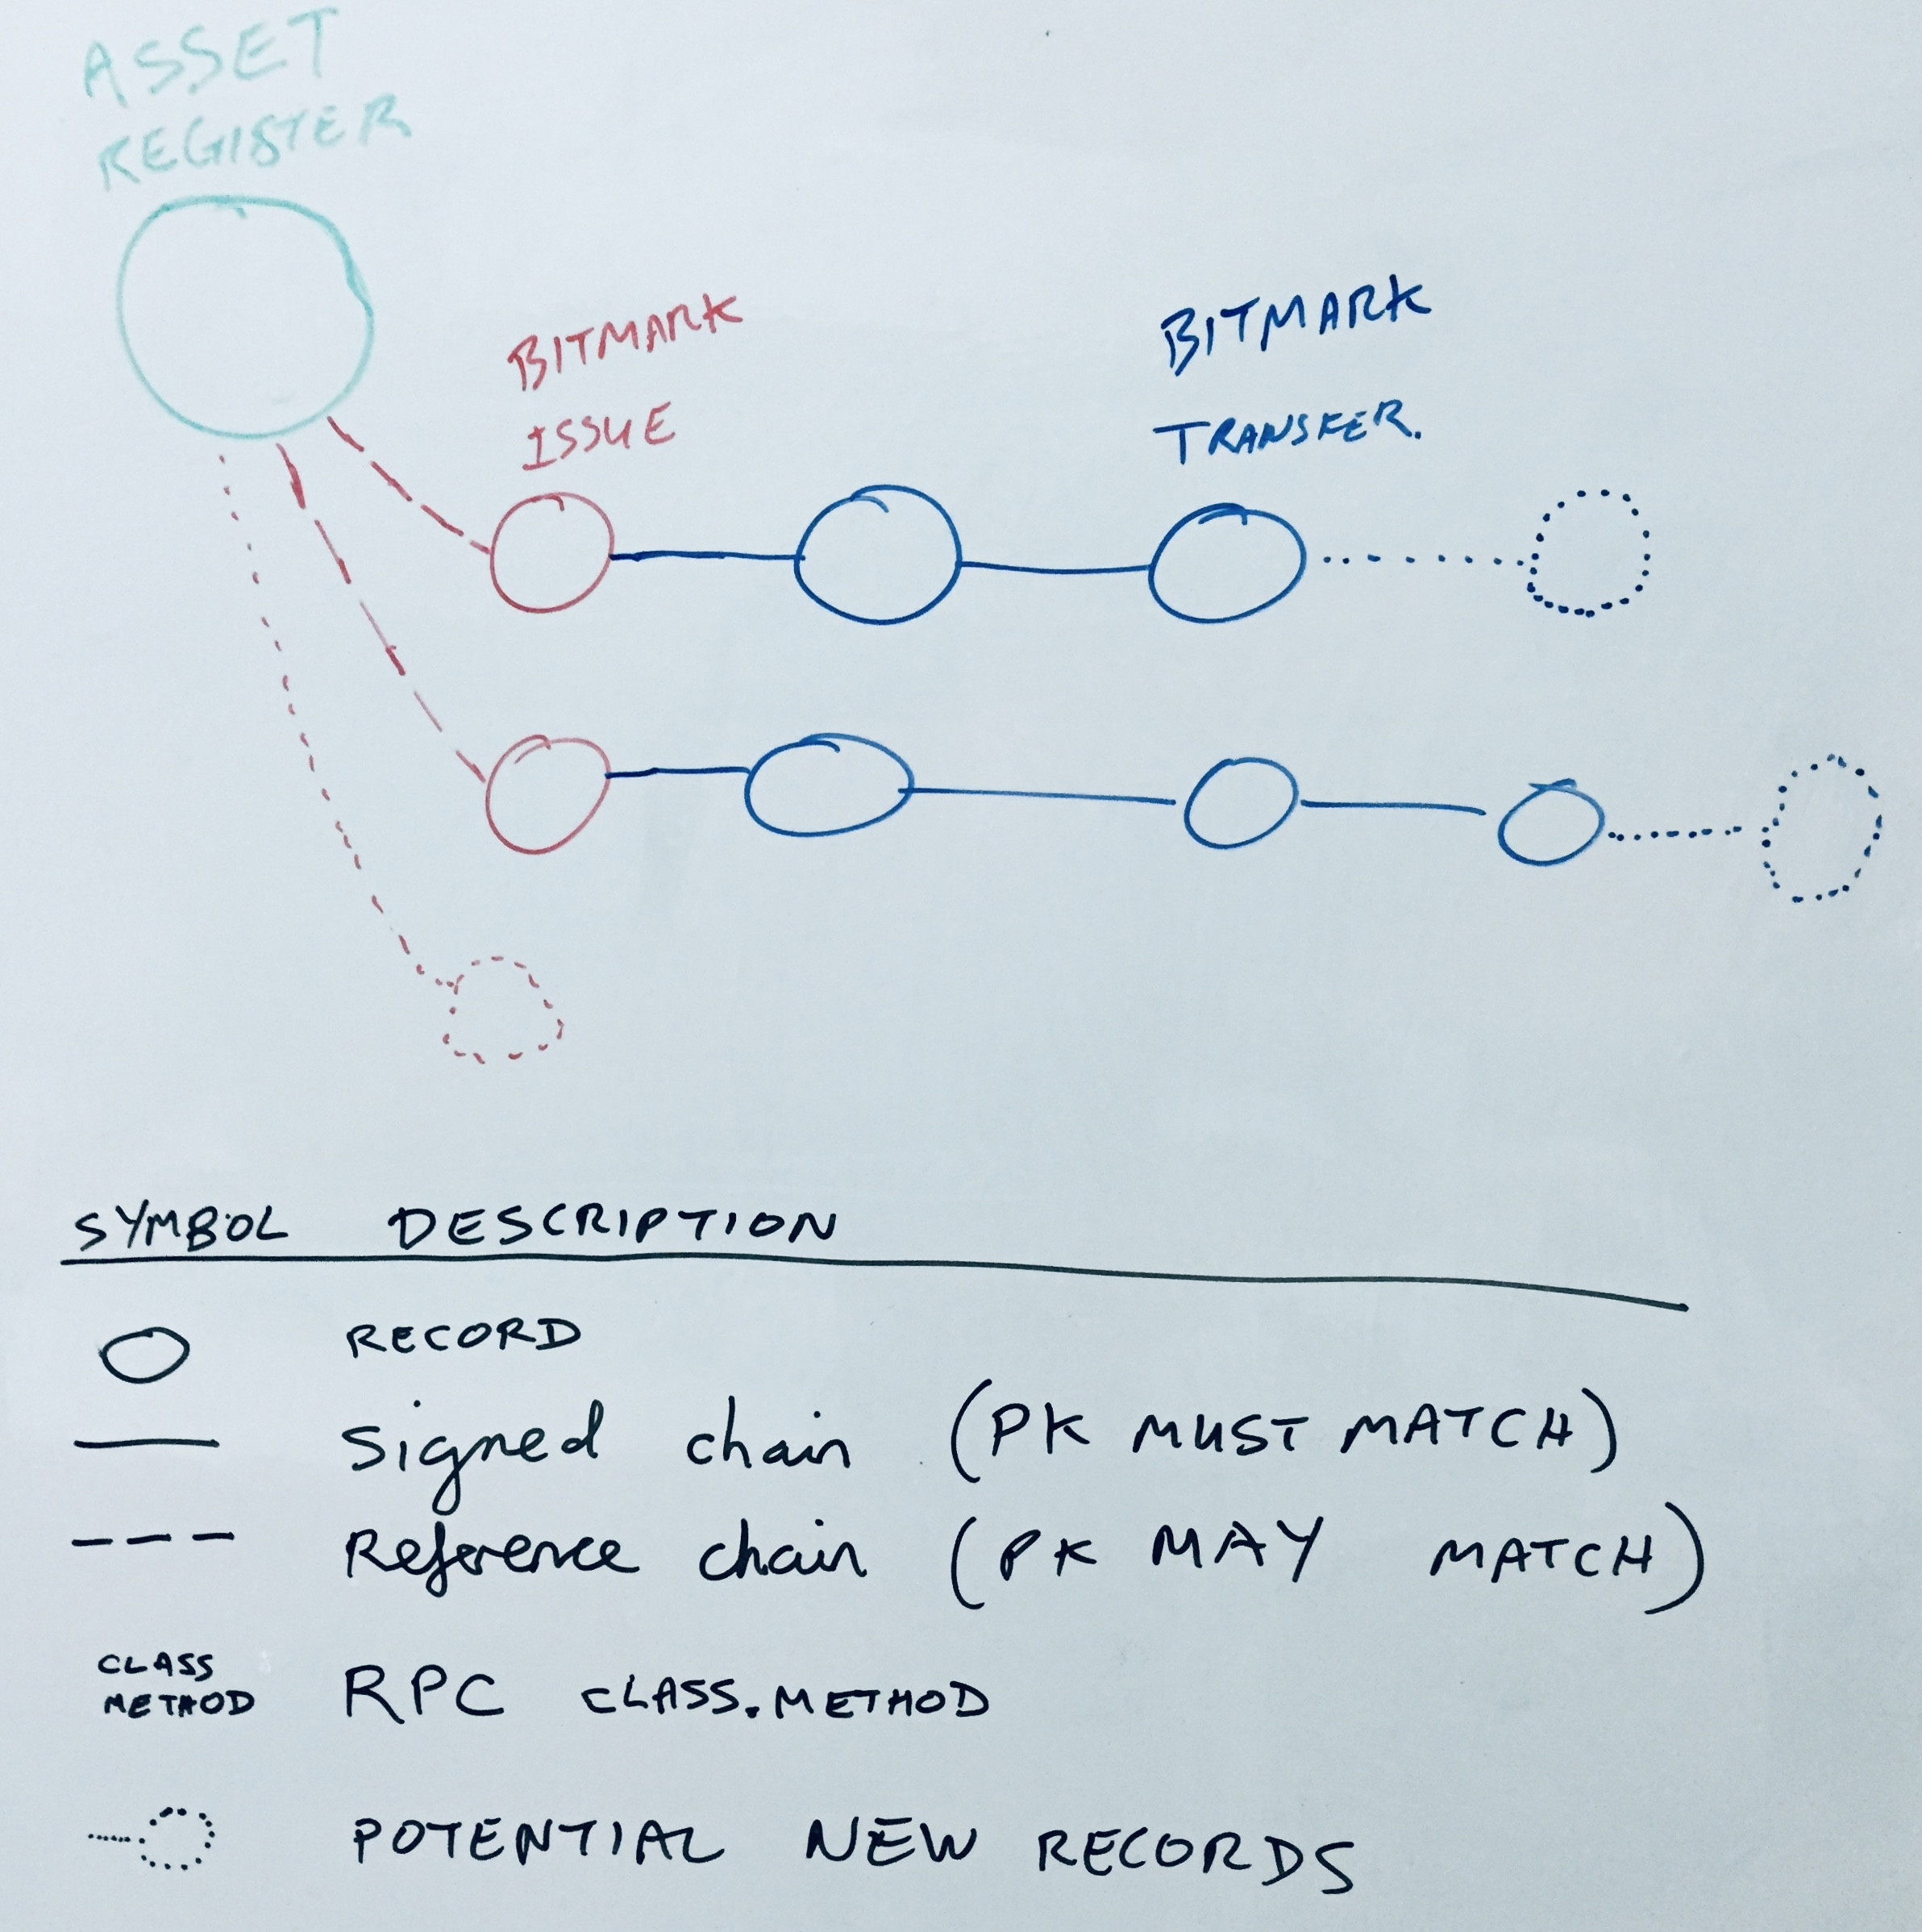 ASSET
REGISTER
BITMARK
ISSUE
BITMARK
TRANSFER.
SYMBOL DESCRIPTION
RECORD
signed chain (PK MUST MATCH)
Reference chain (PK MAY MATCH)
CLASS
METHOD
RPC CLASS.METHOD
POTENTIAL NEW RECORDS